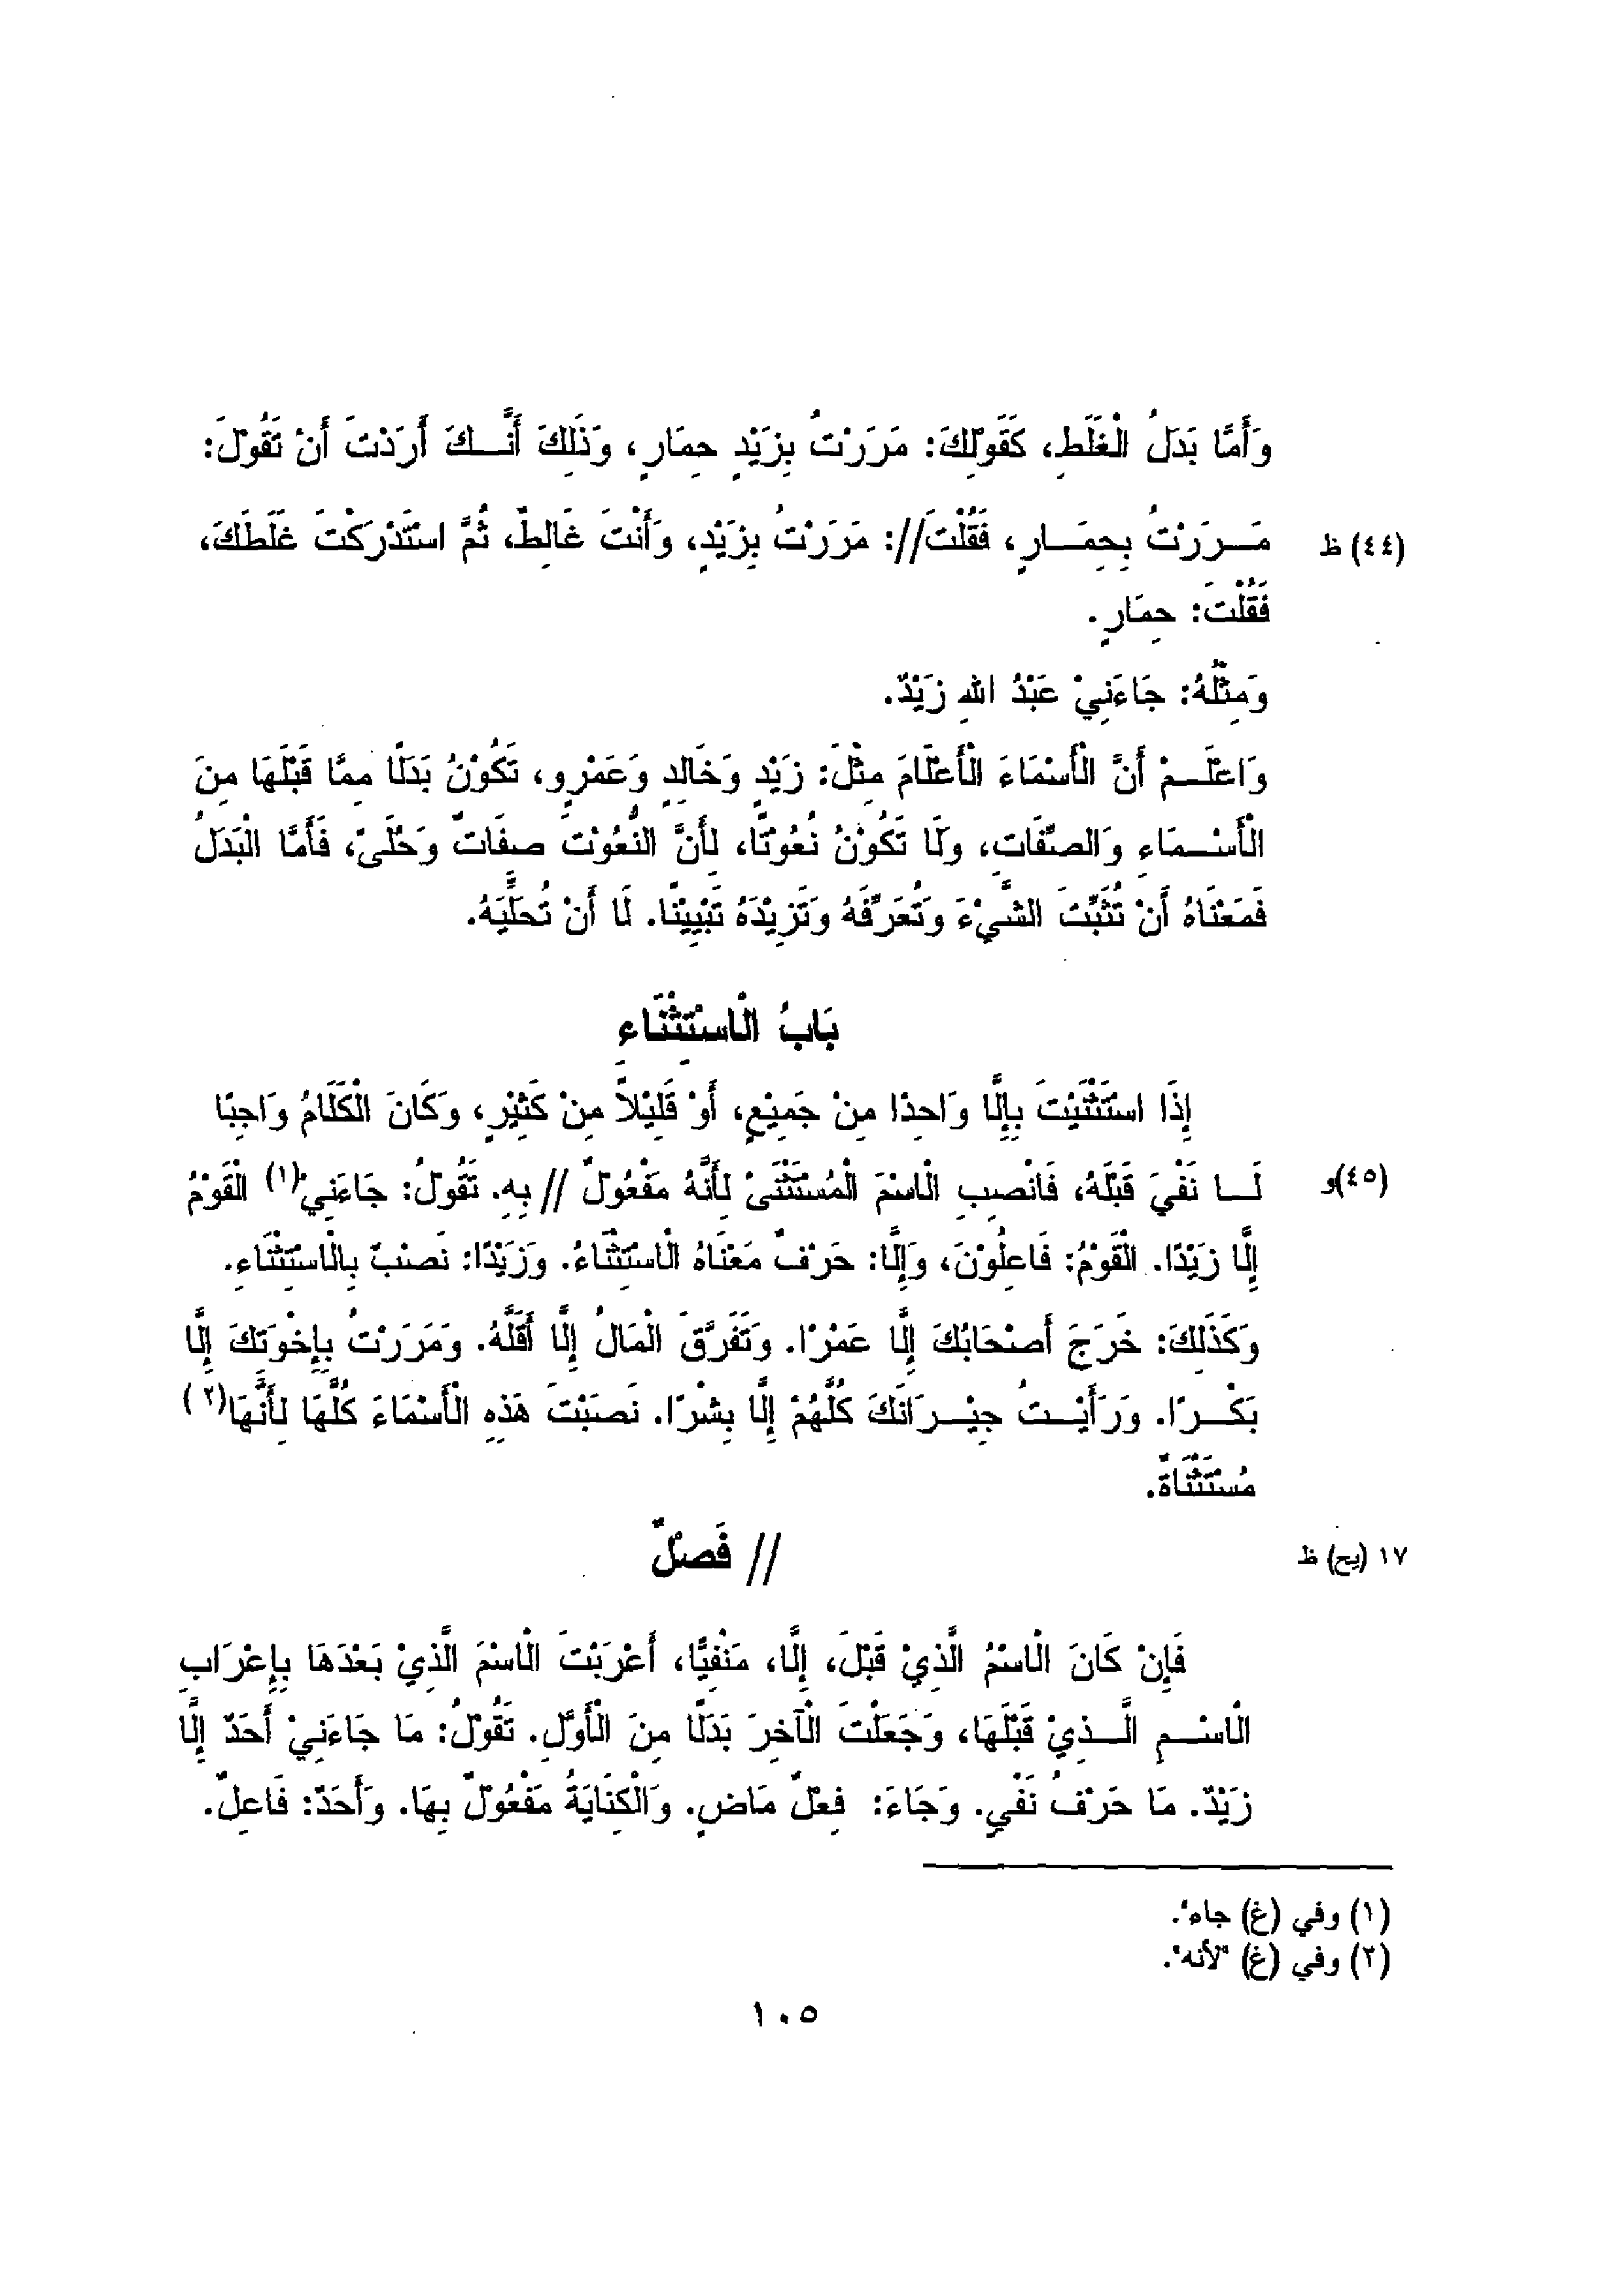 وَأَمَّا بَدَلُ الْغَلَطِ، كَقَوْلِكَ: مَرَرْتُ بِزَيْدٍ حِمَارٍ، وَذَلِكَ أَنَّــكَ أَرَدْتَ أَنْ تَقُوْلَ:
(٤٤) ظ مَــرَرْتُ بِحِمَــارٍ، فَقُلْتَ//: مَرَرْتُ بِزَيْدٍ، وَأَنْتَ غَالِطٌ، ثُمَّ اسْتَدْرَكْتَ غَلَطَكَ،
فَقُلْتَ: حِمَارٍ.
وَمِثْلُهُ: جَاءَنِيْ عَبْدُ اللهِ زَيْدٌ.
وَاعْلَــمْ أَنَّ الْأَسْمَاءَ الْأَعْلَامَ مِثْلَ: زَيْدٍ وَخَالِدٍ وَعَمْرٍو، تَكُوْنُ بَدَلًا مِمَّا قَبْلَهَا مِنَ
الْأَسْــمَاءِ وَالصِّفَاتِ، وَلَا تَكُوْنُ نُعُوْتًا، لِأَنَّ النُّعُوْتَ صِفَاتٌ وَحُلَىً، فَأَمَّا الْبَدَلُ
فَمَعْنَاهُ أَنْ تُثَبِّتَ الشَّيْءَ وَتُعَرِّفَهُ وَتَزِيْدَهُ تَبْيِيْنًا. لَا أَنْ تُحَلِّيَهُ.
بَابُ الْاسْتِثْنَاءِ
إِذَا اسْتَثْنَيْتَ بِإِلَّا وَاحِدًا مِنْ جَمِيْعٍ، أَوْ قَلِيْلاً مِنْ كَثِيْرٍ، وَكَانَ الْكَلَامُ وَاجِبًا
(٤٥)و لَــا نَفْيَ قَبْلَهُ، فَانْصِبِ الْاسْمَ الْمُسْتَثْنَىْ لِأَنَّهُ مَفْعُوْلٌ // بِهِ. تَقُوْلُ: جَاءَنِيْ(١) الْقَوْمُ
إِلَّا زَيْدًا. الْقَوْمُ: فَاعِلُوْنَ، وَإِلَّا: حَرْفٌ مَعْنَاهُ الْاسْتِثْنَاءُ. وَزَيْدًا: نَصْبٌ بِالْاسْتِثْنَاءِ.
وَكَذَلِكَ: خَرَجَ أَصْحَابُكَ إِلَّا عَمْرًا. وَتَفَرَّقَ الْمَالُ إِلَّا أَقَلَّهُ. وَمَرَرْتُ بِإِخْوَتِكَ إِلَّا
بَكْــرًا. وَرَأَيْــتُ جِيْــرَانَكَ كُلَّهُمْ إِلَّا بِشْرًا. نَصَبْتَ هَذِهِ الْأَسْمَاءَ كُلَّهَا لِأَنَّهَا(٢)
مُسْتَثْنَاةٌ.
١٧ (يح) ظ // فَصْلٌ
فَإِنْ كَانَ الْاسْمُ الَّذِيْ قَبْلَ، إِلَّا، مَنْفِيًّا، أَعْرَبْتَ الْاسْمَ الَّذِيْ بَعْدَهَا بِإِعْرَابِ
الْاسْــمِ الَّــذِيْ قَبْلَهَا، وَجَعَلْتَ الْآخِرَ بَدَلًا مِنَ الْأَوَّلِ. تَقُوْلُ: مَا جَاءَنِيْ أَحَدٌ إِلَّا
زَيْدٌ. مَا حَرْفُ نَفْيٍ. وَجَاءَ: فِعْلٌ مَاضٍ. وَالْكِنَايَةُ مَفْعُوْلٌ بِهَا. وَأَحَدٌ: فَاعِلٌ.
(١) وفي (غ) جاء".
(٢) وفي (غ) "لأنه".
١٠٥